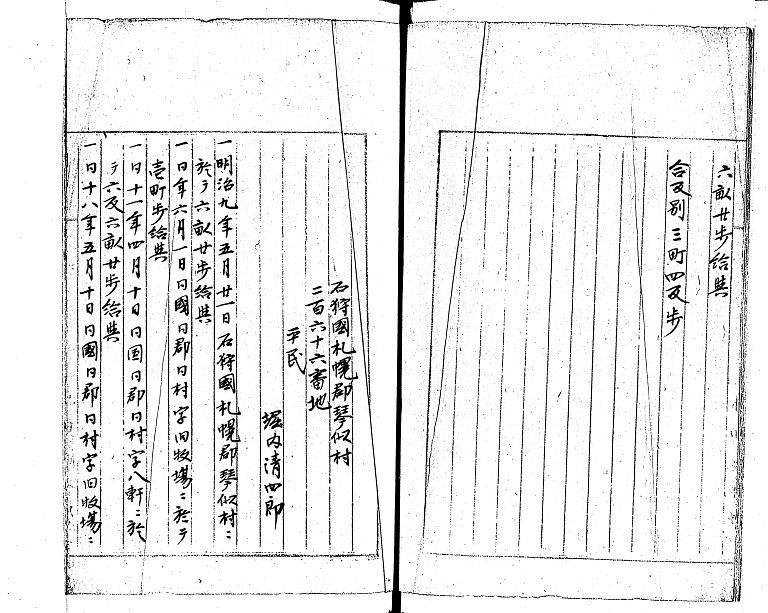 六畝廿歩給与
合反別三町四反歩
石狩國札幌郡琴似村
二百六十六番地
平民
堀内清四郎
一明治九年五月廿一日石狩國札幌郡琴似村ニ
於テ六畝廿歩給与
一日年六月一日日國日郡日村字旧牧場ニ於テ
壱町歩給与
一日十一年四月十日日国日郡日村字八軒ニ於
テ六反六畝廿歩給与
一日十八年五月十日日國日郡日村字旧牧場ニ